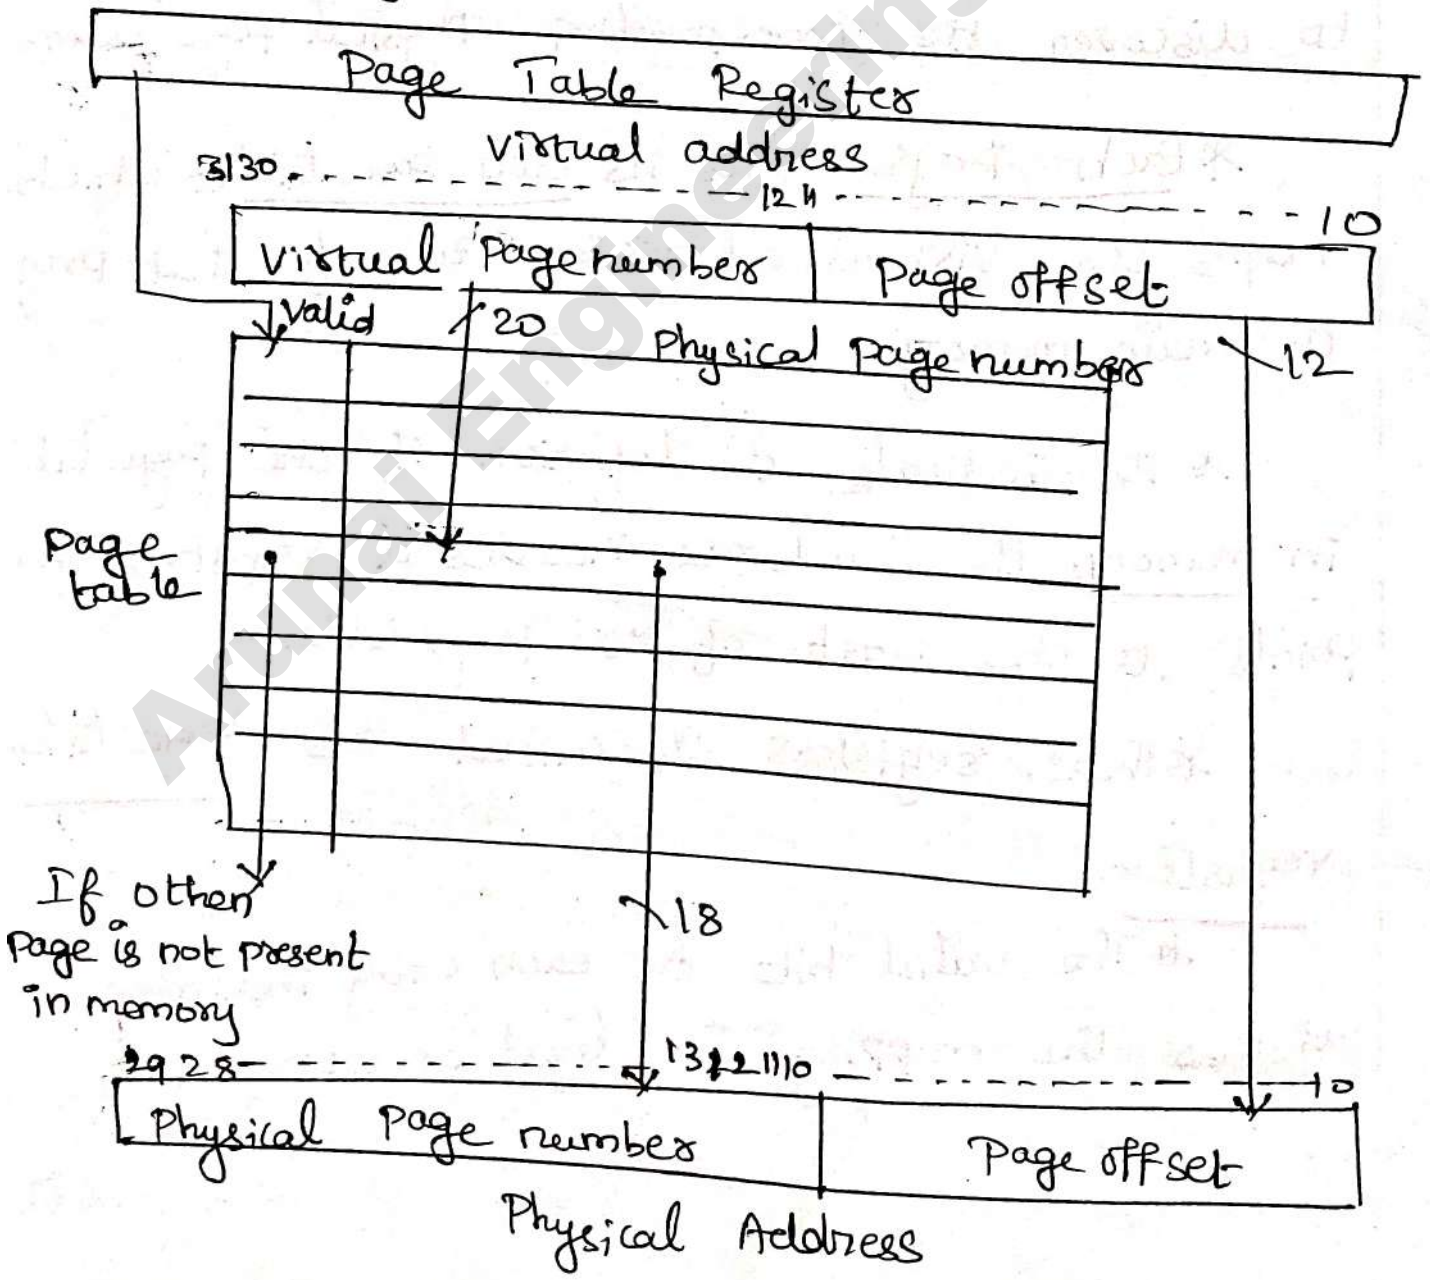 Page Table Register
virtual address
3130 - - - - - - - - - - - 12 11 - - - - - - - - - - 10
Virtual Page number Page offset
Valid 20 Physical page number 12
Page
table
If other
page is not present
in memory
18
29 28 - - - - - - - - - - 10
Physical Page number Page offset
Physical Address
Arunai Engineering